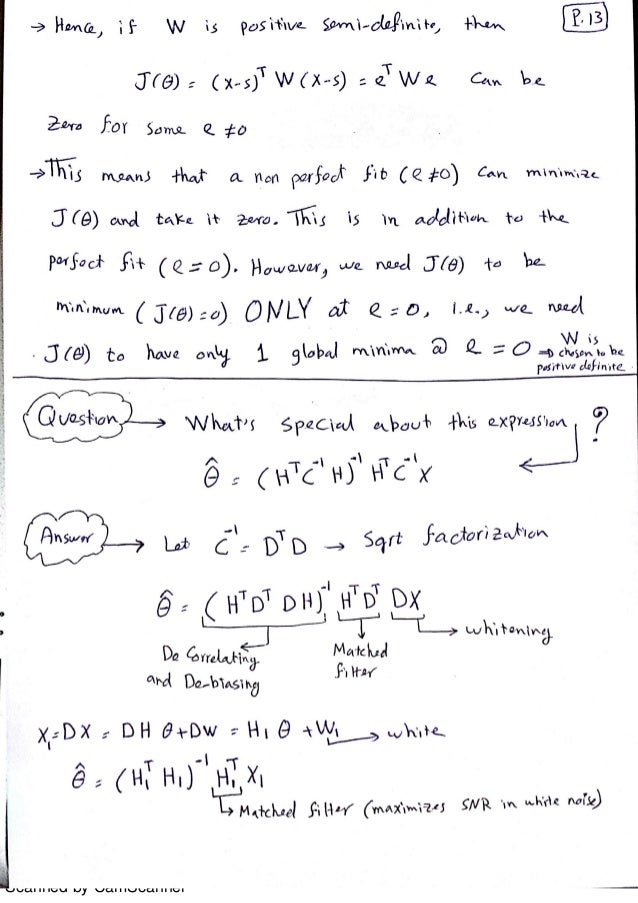 P. 13
→ Hence, if W is positive semi-definite, then
J(θ) = (x-s)ᵀ W (x-s) = eᵀ W e can be
zero for some e ≠ 0
→ This means that a non perfect fit (e ≠ 0) can minimize
J(θ) and take it zero. This is in addition to the
perfect fit (e = 0). However, we need J(θ) to be
minimum (J(θ) = 0) ONLY at e = 0, i.e., we need
J(θ) to have only 1 global minima @ e = 0 ⇒ W is chosen to be positive definite
Question → What's special about this expression ?
θ̂ = (HᵀC⁻¹H)⁻¹ HᵀC⁻¹X
Answer → Let C⁻¹ = DᵀD → Sqrt factorization
θ̂ = (HᵀDᵀ DH)⁻¹ HᵀDᵀ DX
→ whitening
De Correlating
and De-biasing
Matched
filter
X₁ = DX = DH θ + DW = H₁ θ + W₁ → white
θ̂ = (H₁ᵀ H₁)⁻¹ H₁ᵀ X₁
↳ Matched filter (maximizes SNR in white noise)
Scanned by CamScanner